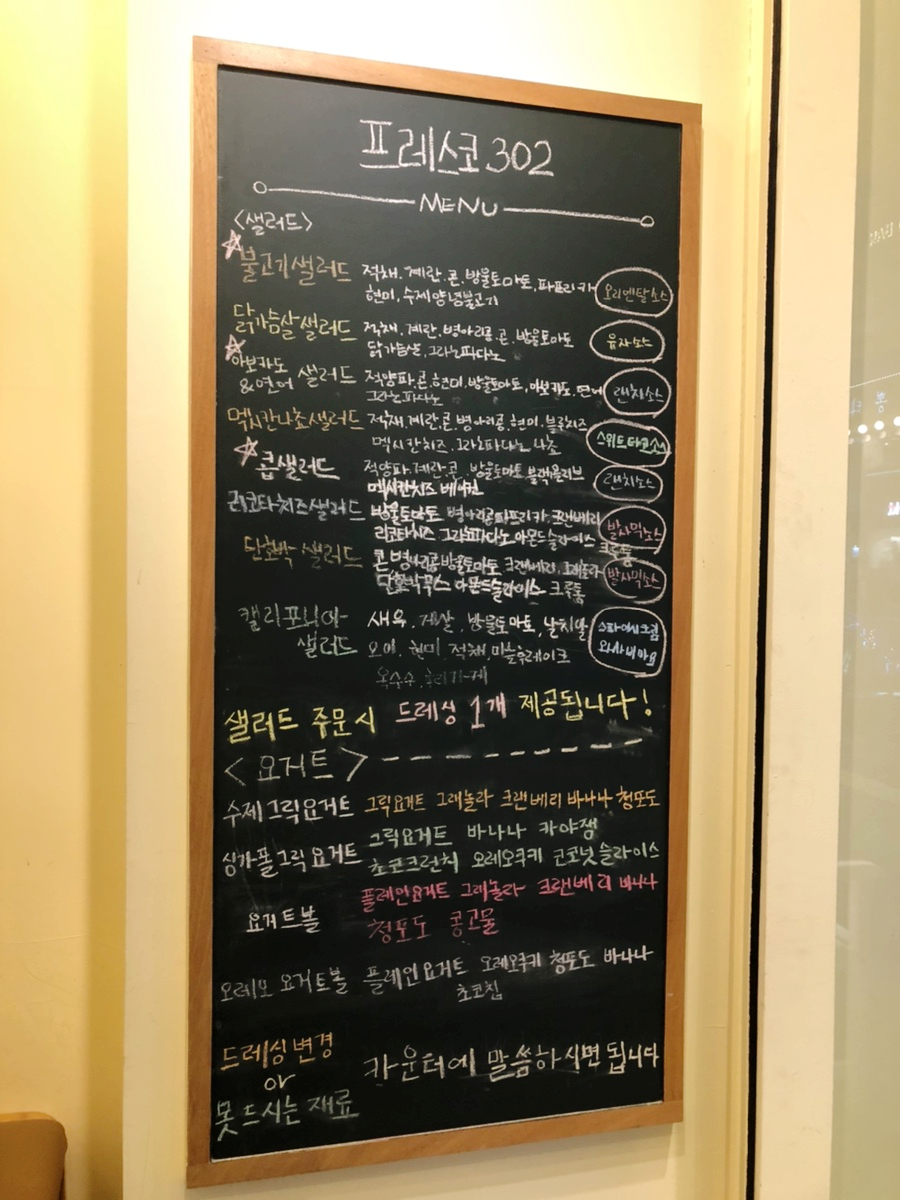 프레스코 302
MENU
<샐러드>
불고기샐러드 적채.계란.콘.방울토마토.파프리카 오리엔탈소스
현미,수제양념불고기
닭가슴살샐러드 적채.계란.병아리콩.콘.방울토마토 유자소스
닭가슴살,그라노파다노
아보카도
&연어 샐러드 적양파.콘.현미.방울토마토,아보카도,연어 랜치소스
그라노파다노
멕시칸나쵸샐러드 적채.계란.콘.병아리콩.현미.블루치즈
멕시칸치즈.그라노파다노.나쵸
콥샐러드 적양파.계란.콘.방울토마토 블랙올리브 랜치소스
멕시칸치즈 베이컨
리코타치즈샐러드 방울토마토 병아리콩파프리카.크랜베리 발사믹소스
리코타치즈 그라노파다노 아몬드슬라이스 크루통
단호박 샐러드 콘,병아리콩방울토마토 크랜베리. 발사믹소스
단호박무스 아몬드슬라이스 크루통
캘리포니아 새우.게살.방울토마토,날치알
샐러드 오이.현미.적채,마늘후레이크 와사비마요
옥수수.
샐러드 주문시 드레싱 1개 제공됩니다!
<요거트>
수제그릭요거트 그릭요거트 그래놀라 크랜베리 바나나 청포도
싱가폴그릭요거트 그릭요거트 바나나 카야잼
초코크런치 오레오쿠키 코코넛슬라이스
요거트볼 플레인요거트 그래놀라 크랜베리 바나나
청포도 콩고물
오레오 요거트볼 플레인요거트 오레오쿠키 청포도 바나나
초코칩
드레싱변경
or 카운터에 말씀하시면됩니다
못드시는 재료